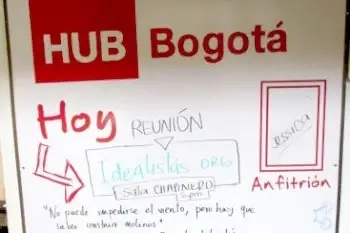 HUB Bogotá
Hoy REUNIÓN
Idealistas ORG
Sala CHAPINERO
Anfitrión
"No puede impedirse el viento, pero hay que
saber construir molinos"